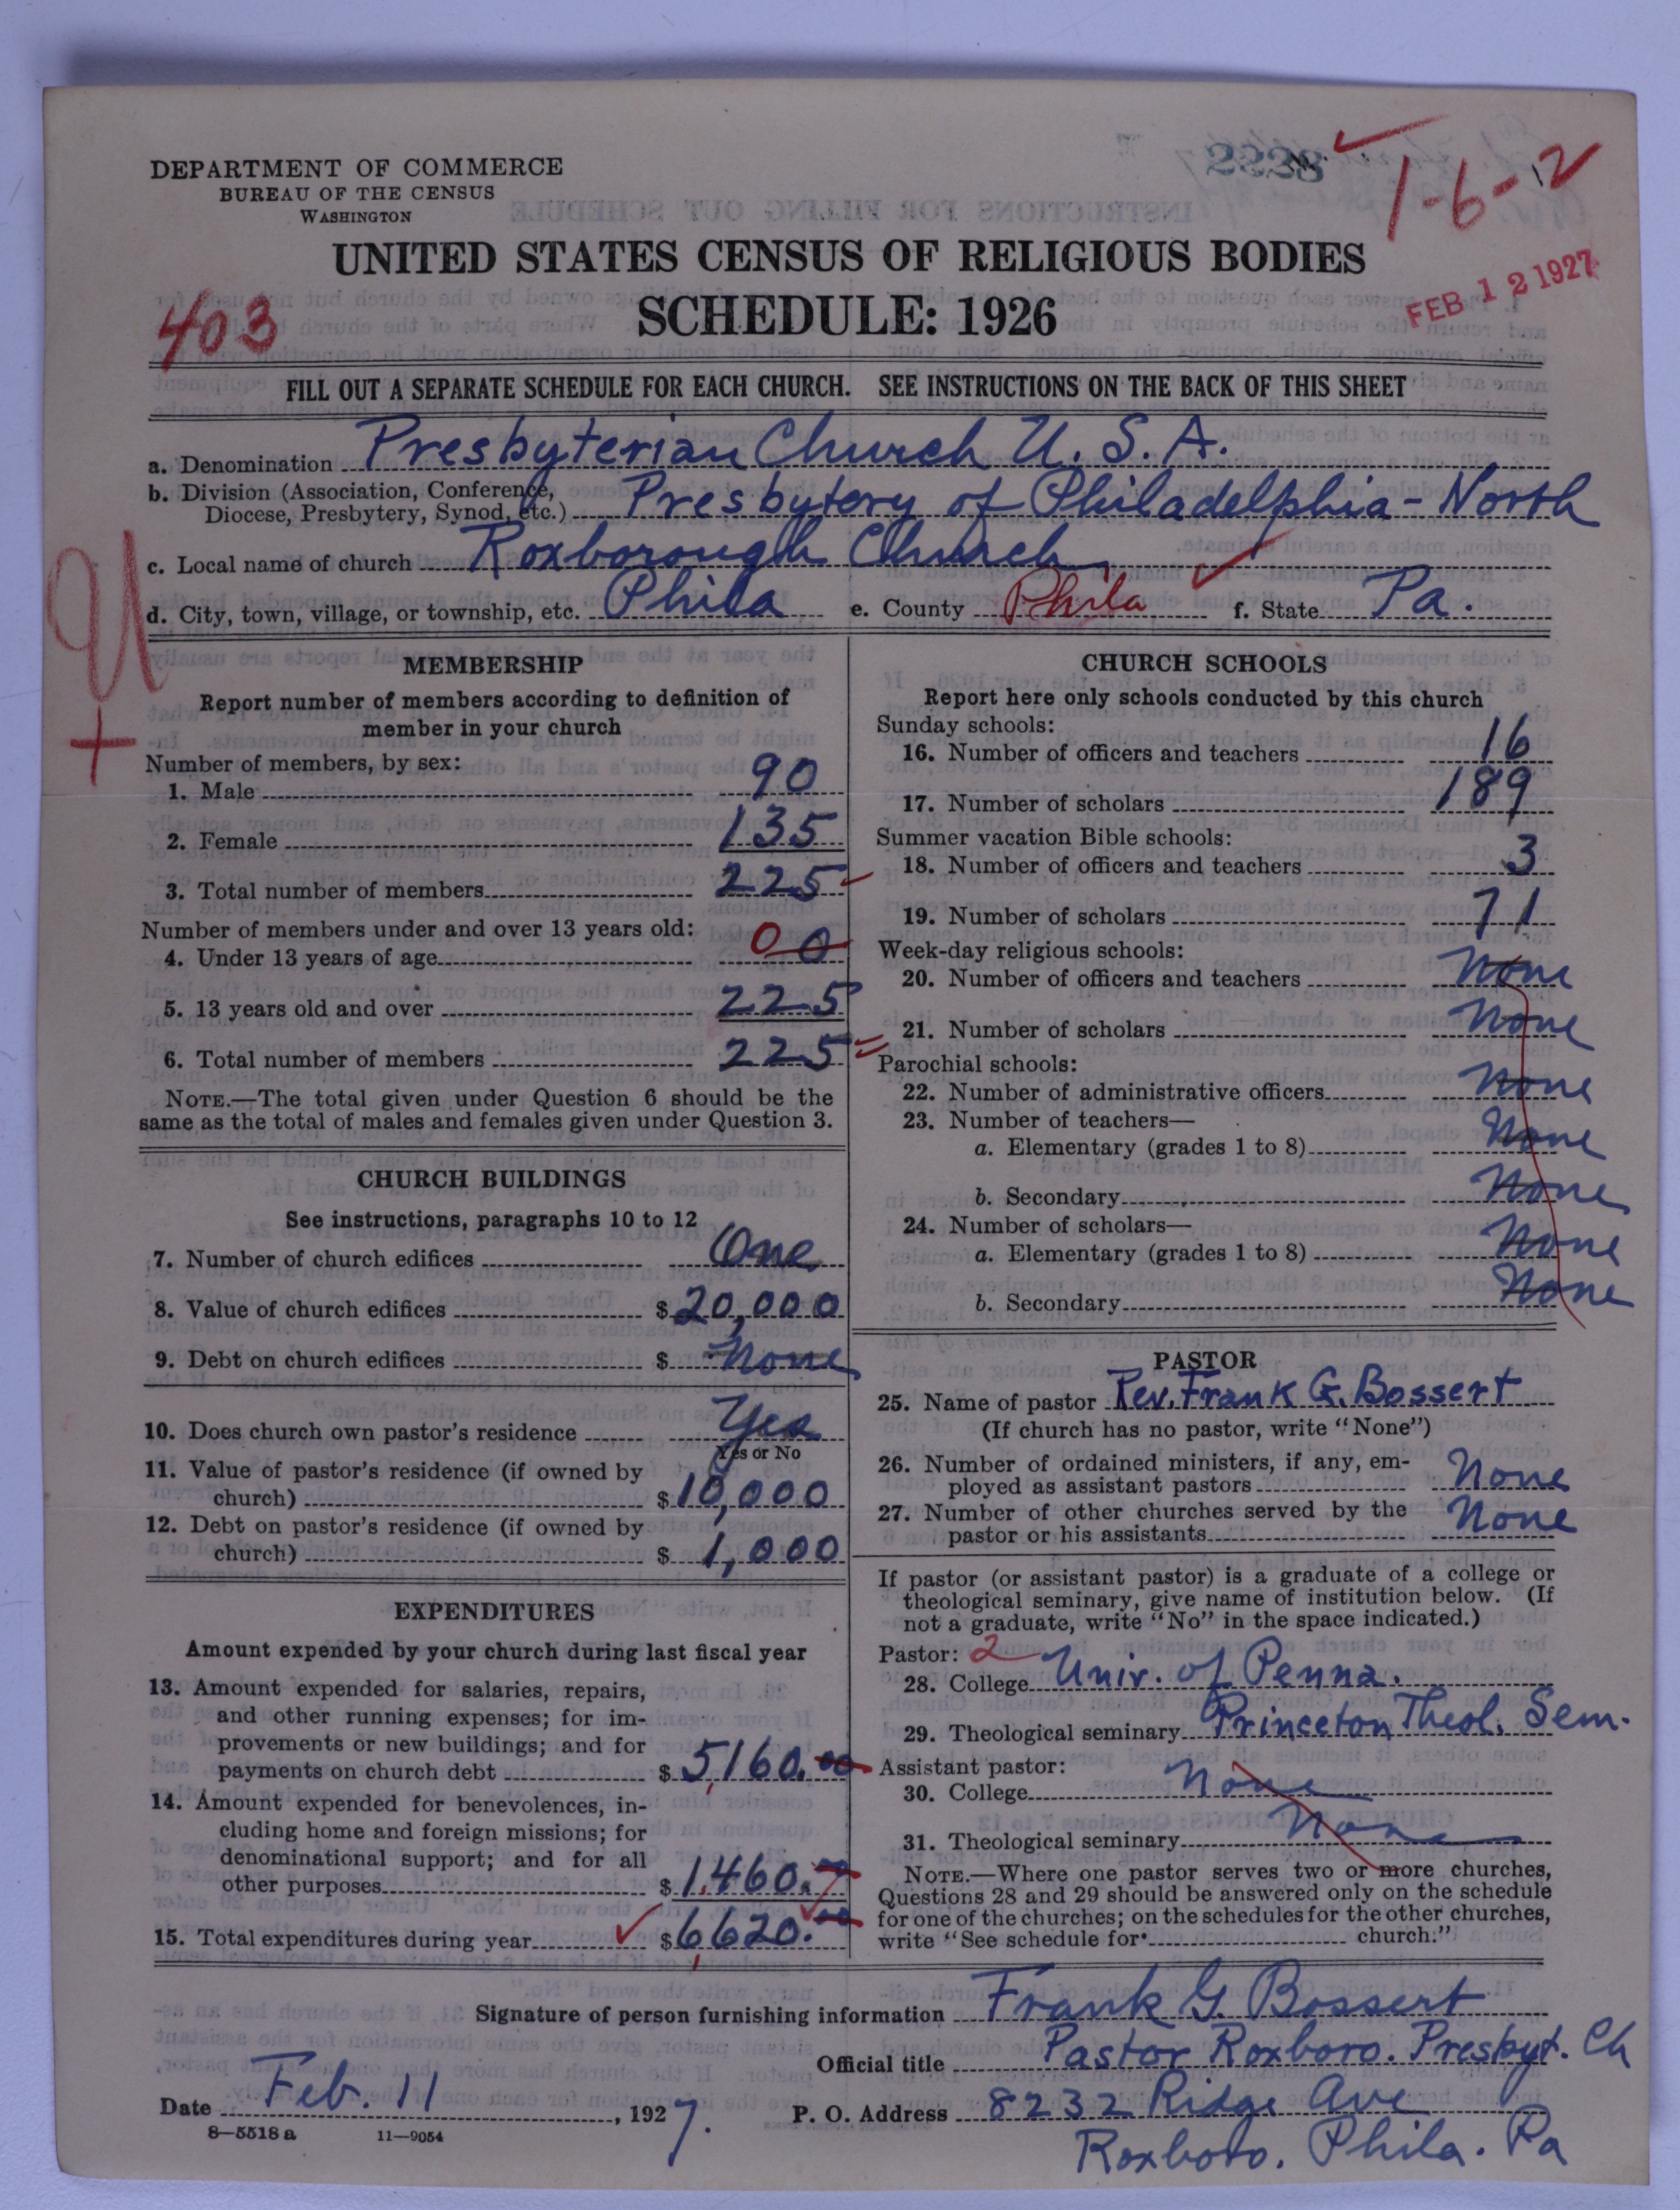 2228
1-6-2
DEPARTMENT OF COMMERCE
BUREAU OF THE CENSUS
WASHINGTON
UNITED STATES CENSUS OF RELIGIOUS BODIES
SCHEDULE: 1926
FEB 12 1927
403
FILL OUT A SEPARATE SCHEDULE FOR EACH CHURCH. SEE INSTRUCTIONS ON THE BACK OF THIS SHEET
a. Denomination Presbyterian Church U. S. A.
b. Division (Association, Conference, Diocese, Presbytery, Synod, etc.) Presbytery of Philadelphia-North
c. Local name of church Roxborough Church
d. City, town, village, or township, etc. Phila e. County Phila f. State Pa.
MEMBERSHIP
Report number of members according to definition of
member in your church
Number of members, by sex:
1. Male 90
2. Female 135
3. Total number of members 225
Number of members under and over 13 years old:
4. Under 13 years of age 0 0
5. 13 years old and over 225
6. Total number of members 225
NOTE.—The total given under Question 6 should be the
same as the total of males and females given under Question 3.
CHURCH BUILDINGS
See instructions, paragraphs 10 to 12
7. Number of church edifices One
8. Value of church edifices $20,000
9. Debt on church edifices $ None
10. Does church own pastor's residence Yes
Yes or No
11. Value of pastor's residence (if owned by
church) $10,000
12. Debt on pastor's residence (if owned by
church) $ 1,000
EXPENDITURES
Amount expended by your church during last fiscal year
13. Amount expended for salaries, repairs,
and other running expenses; for im-
provements or new buildings; and for
payments on church debt $5,160.00
14. Amount expended for benevolences, in-
cluding home and foreign missions; for
denominational support; and for all
other purposes $1,460.
15. Total expenditures during year $6,620.00
CHURCH SCHOOLS
Report here only schools conducted by this church
Sunday schools:
16. Number of officers and teachers 16
17. Number of scholars 189
Summer vacation Bible schools:
18. Number of officers and teachers 3
19. Number of scholars 71
Week-day religious schools:
20. Number of officers and teachers None
21. Number of scholars None
Parochial schools:
22. Number of administrative officers None
23. Number of teachers—
a. Elementary (grades 1 to 8) None
b. Secondary None
24. Number of scholars—
a. Elementary (grades 1 to 8) None
b. Secondary None
PASTOR
25. Name of pastor Rev. Frank G. Bossert
(If church has no pastor, write "None")
26. Number of ordained ministers, if any, em-
ployed as assistant pastors None
27. Number of other churches served by the
pastor or his assistants None
If pastor (or assistant pastor) is a graduate of a college or
theological seminary, give name of institution below. (If
not a graduate, write "No" in the space indicated.)
Pastor: 2
28. College Univ. of Penna.
29. Theological seminary Princeton Theol. Sem.
Assistant pastor:
30. College None
31. Theological seminary None
NOTE.—Where one pastor serves two or more churches,
Questions 28 and 29 should be answered only on the schedule
for one of the churches; on the schedules for the other churches,
write "See schedule for church."
Signature of person furnishing information Frank G. Bossert
Official title Pastor Roxboro. Presbyt. Ch
Date Feb. 11, 1927. P. O. Address 8232 Ridge Ave
Roxboro. Phila. Pa
8—5518 a 11—9054